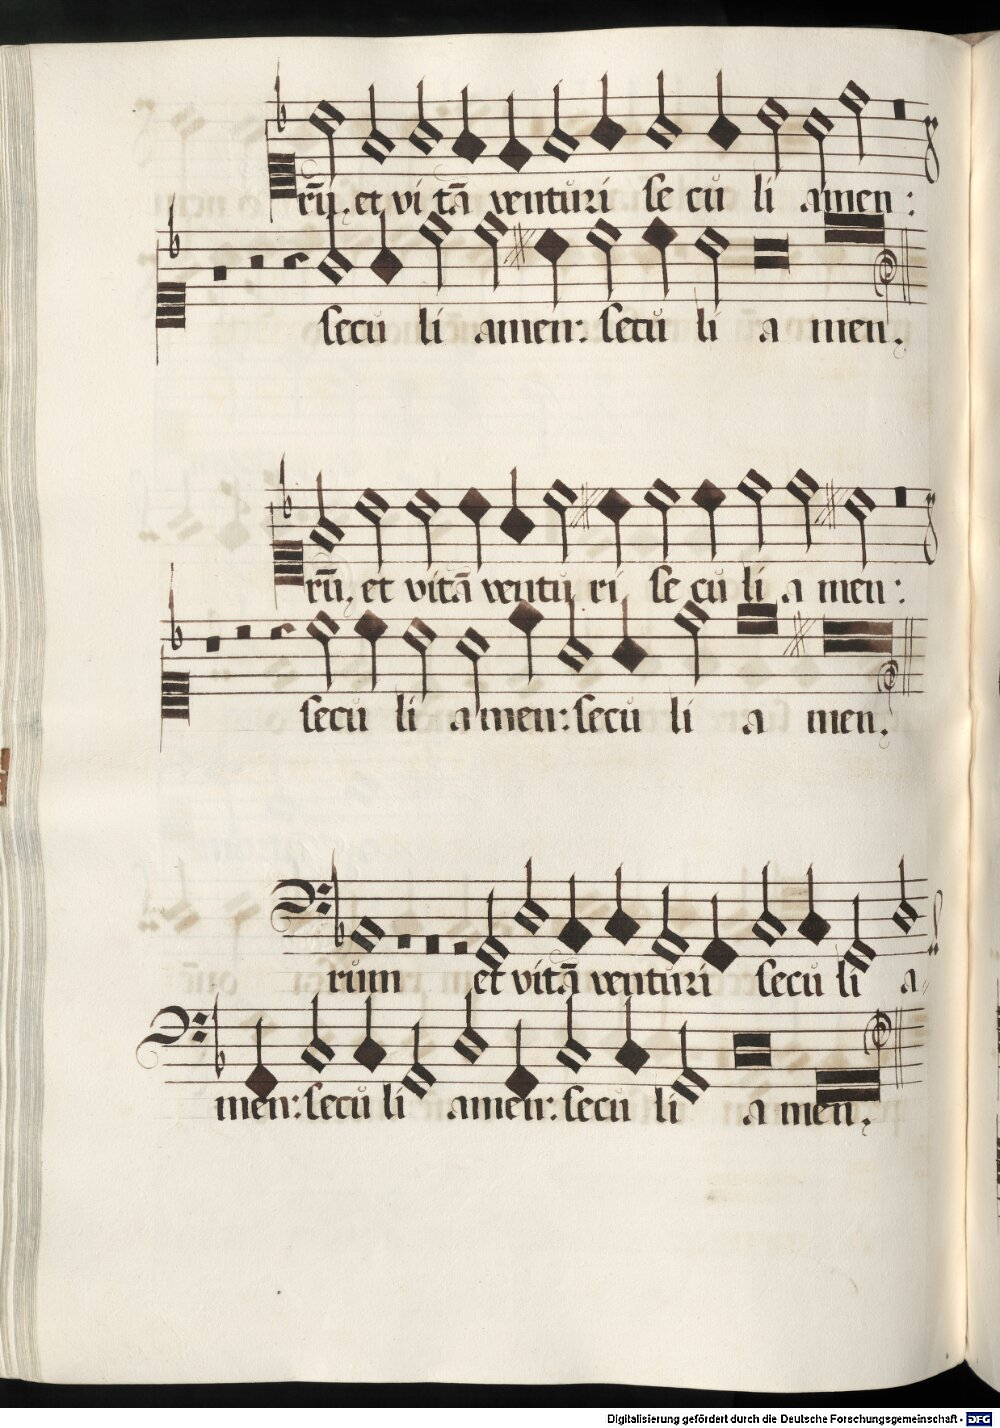 rū. et vi tā venturi se cu li amen:
secu li amen: secu li a men.
rū. et vitā ventu ri se cu li a men:
secu li a men: secu li a men.
rum et vitā venturi secu li a-
men: secu li amen: secu li a men.
Digitalisierung gefördert durch die Deutsche Forschungsgemeinschaft - DFG